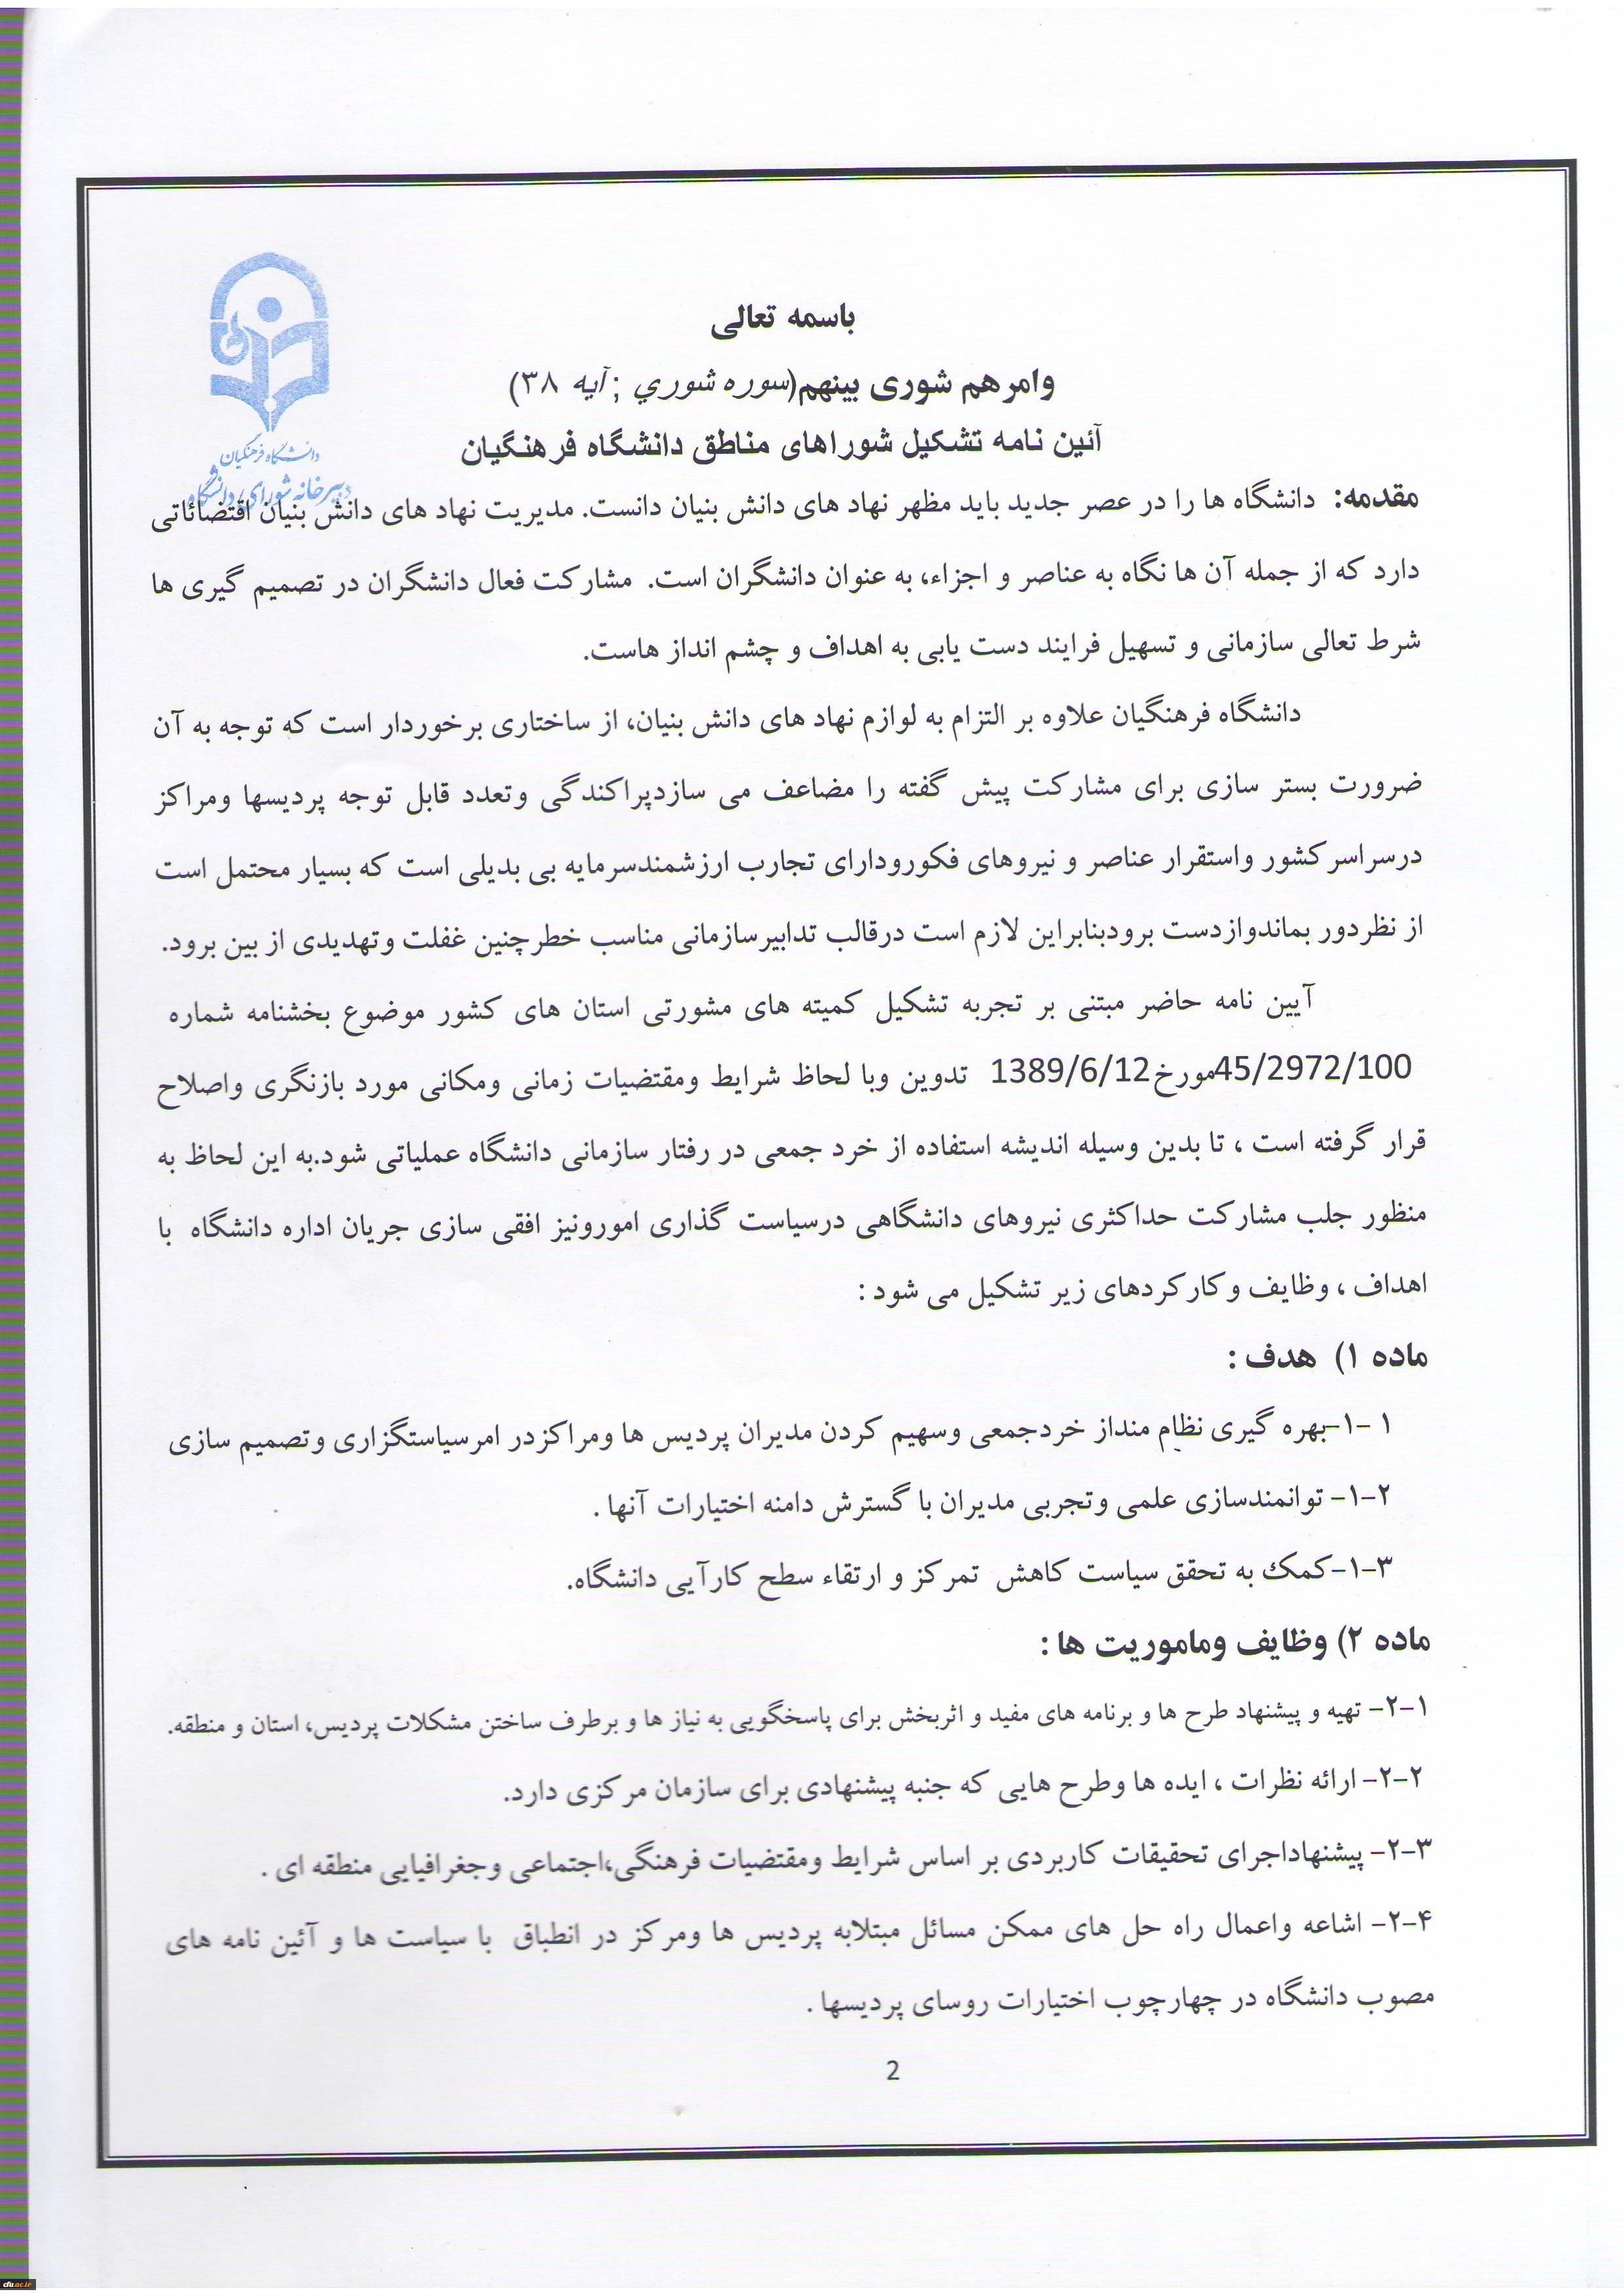 باسمه تعالی
وامرهم شوری بینهم(سوره شوري ;آیه ۳۸)
آئین نامه تشکیل شوراهای مناطق دانشگاه فرهنگیان
دانشگاه فرهنگیان
دبیرخانه شورای دانشگاه
مقدمه: دانشگاه ها را در عصر جدید باید مظهر نهاد های دانش بنیان دانست. مدیریت نهاد های دانش بنیان اقتضائاتی
دارد که از جمله آن ها نگاه به عناصر و اجزاء، به عنوان دانشگران است. مشارکت فعال دانشگران در تصمیم گیری ها
شرط تعالی سازمانی و تسهیل فرایند دست یابی به اهداف و چشم انداز هاست.
دانشگاه فرهنگیان علاوه بر التزام به لوازم نهاد های دانش بنیان، از ساختاری برخوردار است که توجه به آن
ضرورت بستر سازی برای مشارکت پیش گفته را مضاعف می سازدپراکندگی وتعدد قابل توجه پردیسها ومراکز
درسراسرکشور واستقرار عناصر و نیروهای فکورودارای تجارب ارزشمندسرمایه بی بدیلی است که بسیار محتمل است
از نظردور بماندوازدست برودبنابراین لازم است درقالب تدابیرسازمانی مناسب خطرچنین غفلت وتهدیدی از بین برود.
آیین نامه حاضر مبتنی بر تجربه تشکیل کمیته های مشورتی استان های کشور موضوع بخشنامه شماره
45/2972/100مورخ1389/6/12 تدوین وبا لحاظ شرایط ومقتضیات زمانی ومکانی مورد بازنگری واصلاح
قرار گرفته است ، تا بدین وسیله اندیشه استفاده از خرد جمعی در رفتار سازمانی دانشگاه عملیاتی شود.به این لحاظ به
منظور جلب مشارکت حداکثری نیروهای دانشگاهی درسیاست گذاری امورونیز افقی سازی جریان اداره دانشگاه با
اهداف ، وظایف وکارکردهای زیر تشکیل می شود :
ماده ۱) هدف :
۱ -۱-بهره گیری نظام منداز خردجمعی وسهیم کردن مدیران پردیس ها ومراکزدر امرسیاستگزاری وتصمیم سازی
۱-۲- توانمندسازی علمی وتجربی مدیران با گسترش دامنه اختیارات آنها .
۱-۳-کمک به تحقق سیاست کاهش تمرکز و ارتقاء سطح کارآیی دانشگاه.
ماده ۲) وظایف وماموریت ها :
۲-۱- تهیه و پیشنهاد طرح ها و برنامه های مفید و اثربخش برای پاسخگویی به نیاز ها و برطرف ساختن مشکلات پردیس، استان و منطقه.
۲-۲- ارائه نظرات ، ایده ها وطرح هایی که جنبه پیشنهادی برای سازمان مرکزی دارد.
۲-۳- پیشنهاداجرای تحقیقات کاربردی بر اساس شرایط ومقتضیات فرهنگی،اجتماعی وجغرافیایی منطقه ای .
۲-۴- اشاعه واعمال راه حل های ممکن مسائل مبتلابه پردیس ها ومرکز در انطباق با سیاست ها و آئین نامه های
مصوب دانشگاه در چهارچوب اختیارات روسای پردیسها .
2
cfu.ac.ir